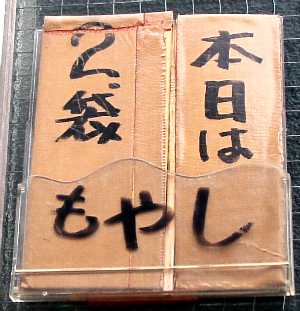 本日は
2袋
もやし